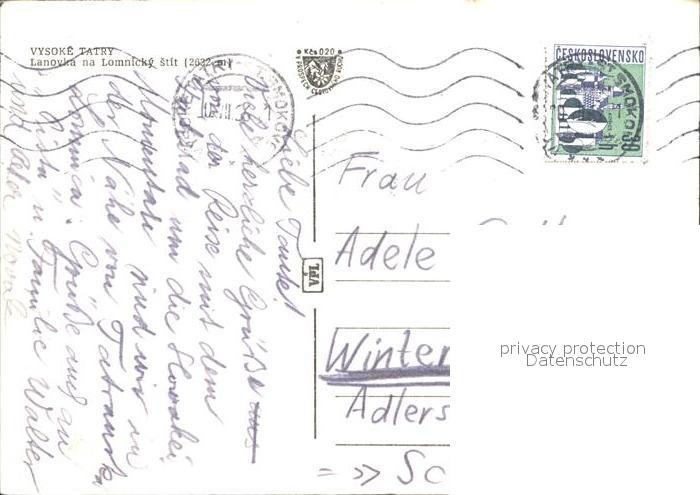 VYSOKÉ TATRY
Lanovka na Lomnický štít (2632 m)
Kčs 0.20
ČESKOSLOVENSKO
VPL
Liebe Tante!
Viele herzliche Grüße
von der Reise mit dem
Fahrrad um die Slowakei
Momentan sind wir in
der Nähe von Tatranská
Lomnica. Grüße auch an
u. Familie Walter
und
Frau
Adele
Winter
Adlers
=>> Sc
privacy protection
Datenschutz